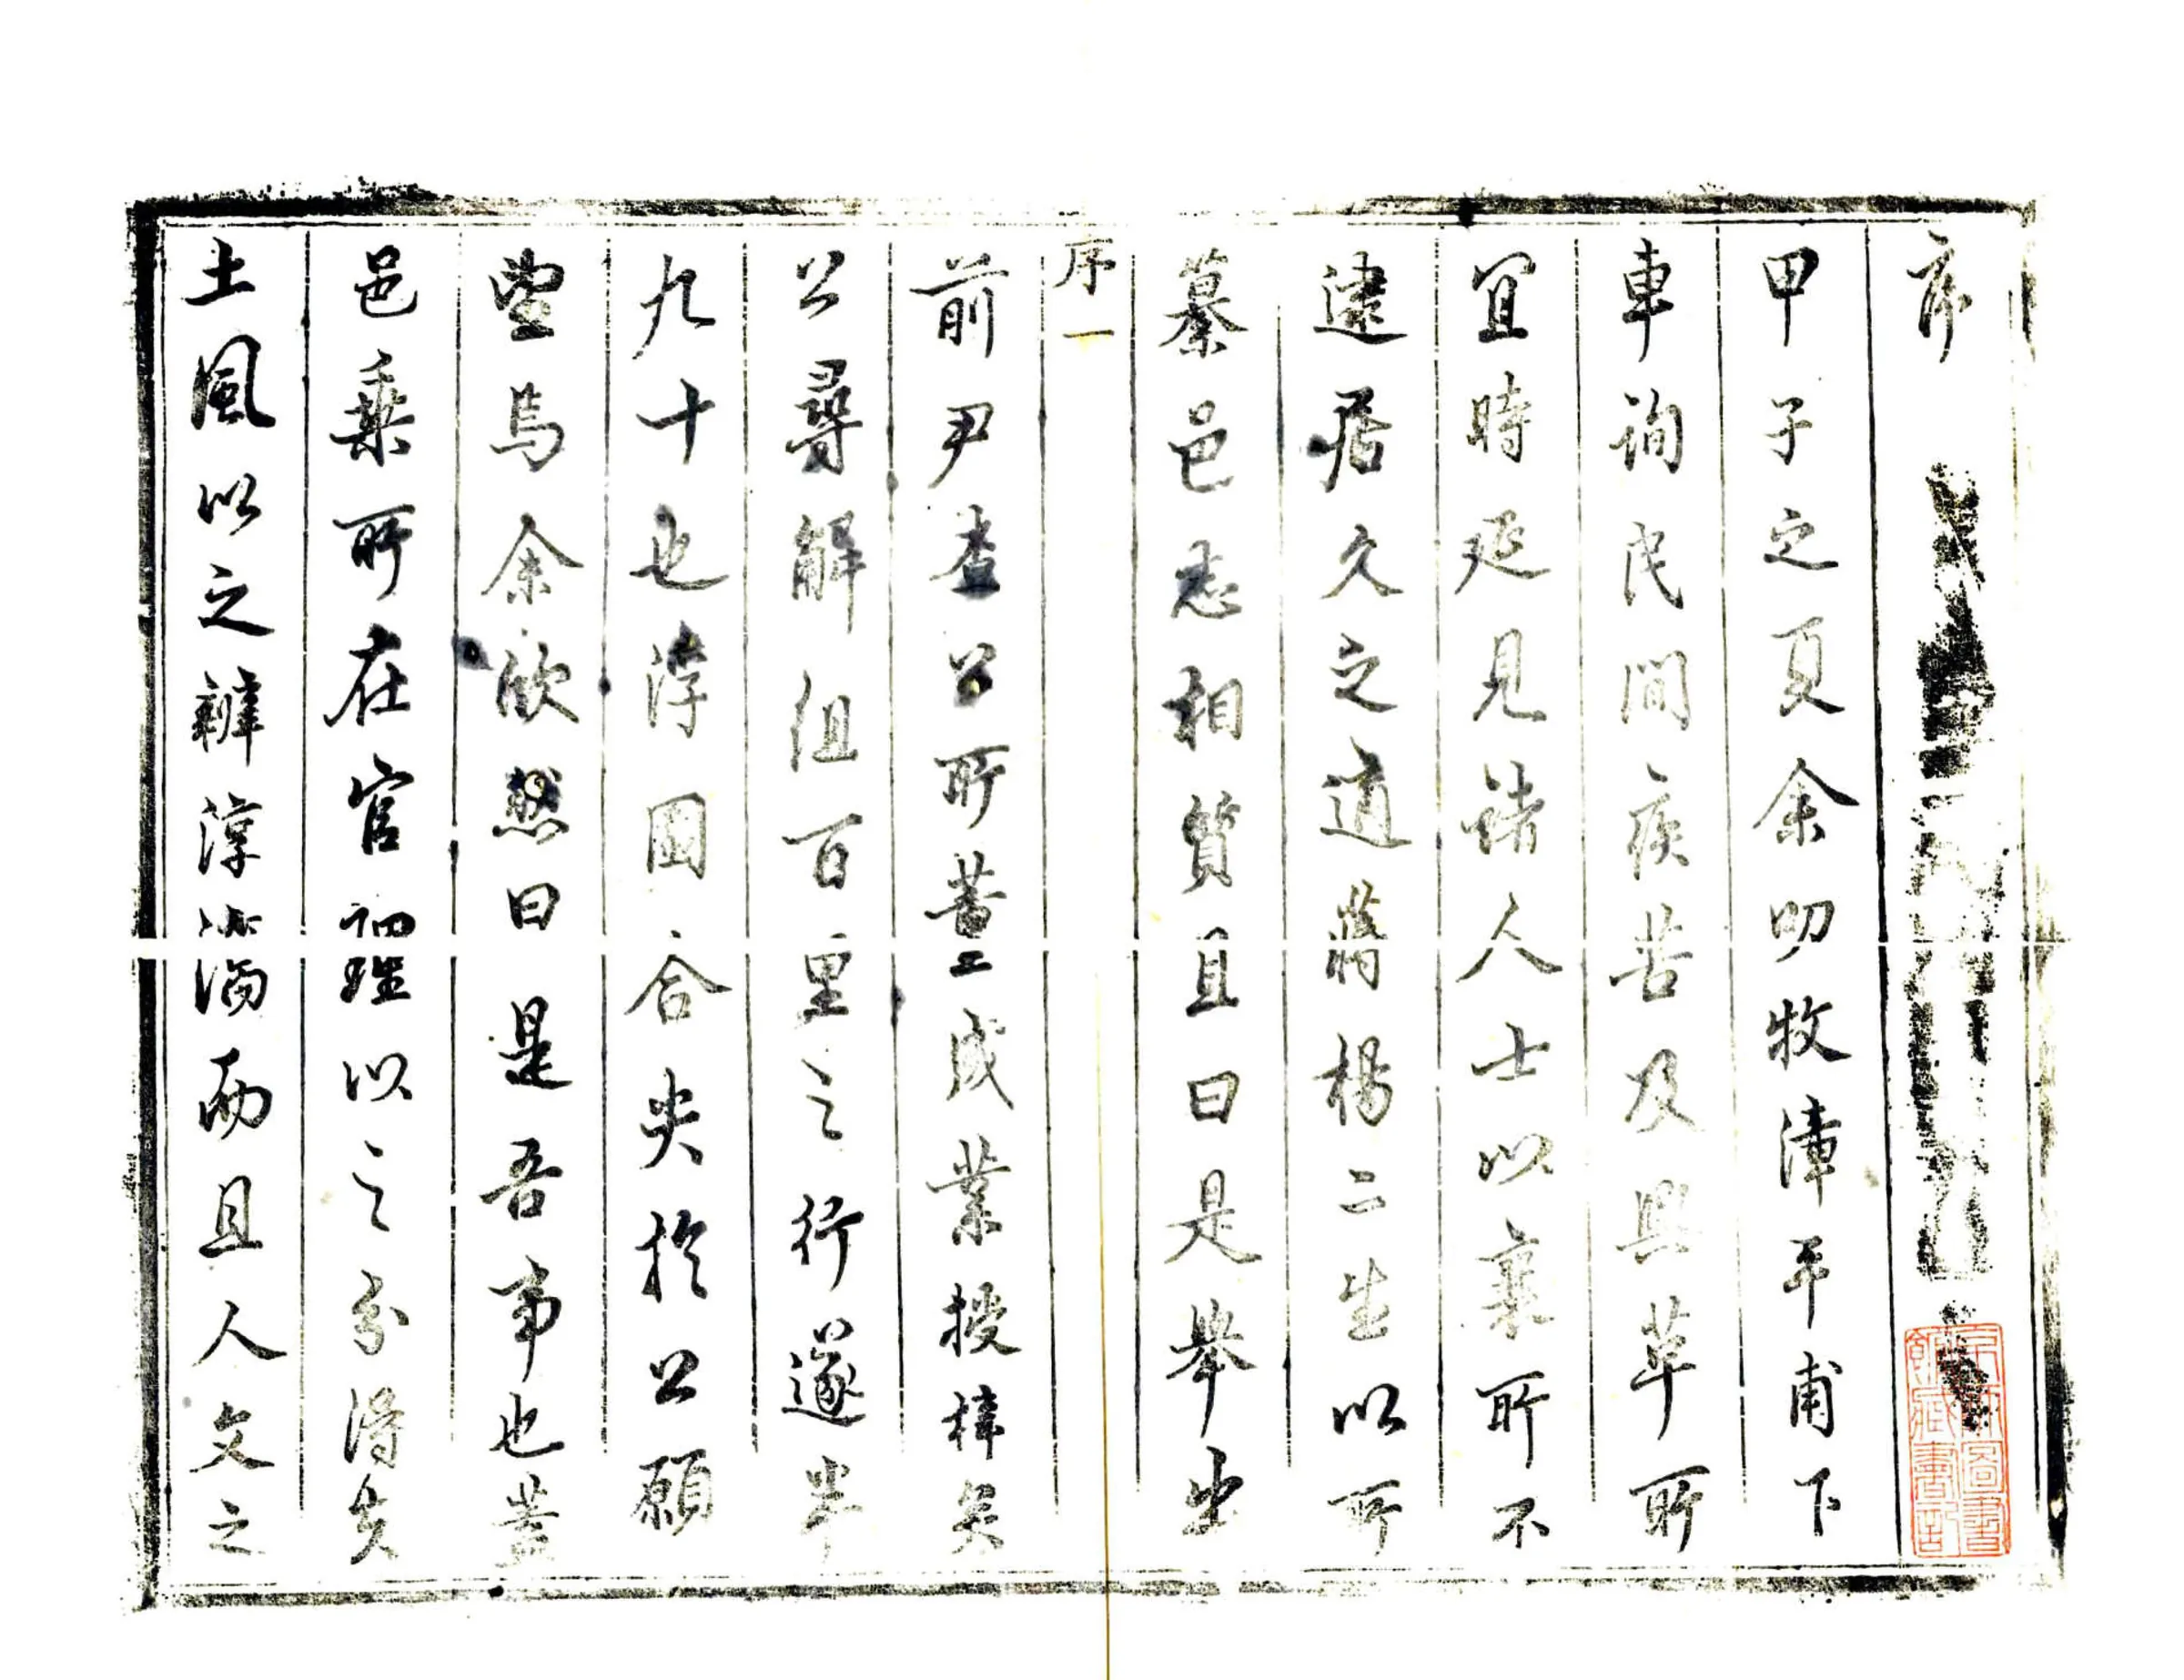 序
甲子之夏余叨牧漳平甫下
車詢民間疾苦及興革所
宜時延見諸人士以襄所不
逮居久之適蔣楊二生以所
纂邑志相質且曰是舉也
序一
前尹查公所董成業授梓矣
公尋解組百里之行遂半
九十也浮圖合尖於公願
望焉余欣然曰是吾事也蓋
邑乘所在官理以之分得失
土風以之辨淳漓而且人文之